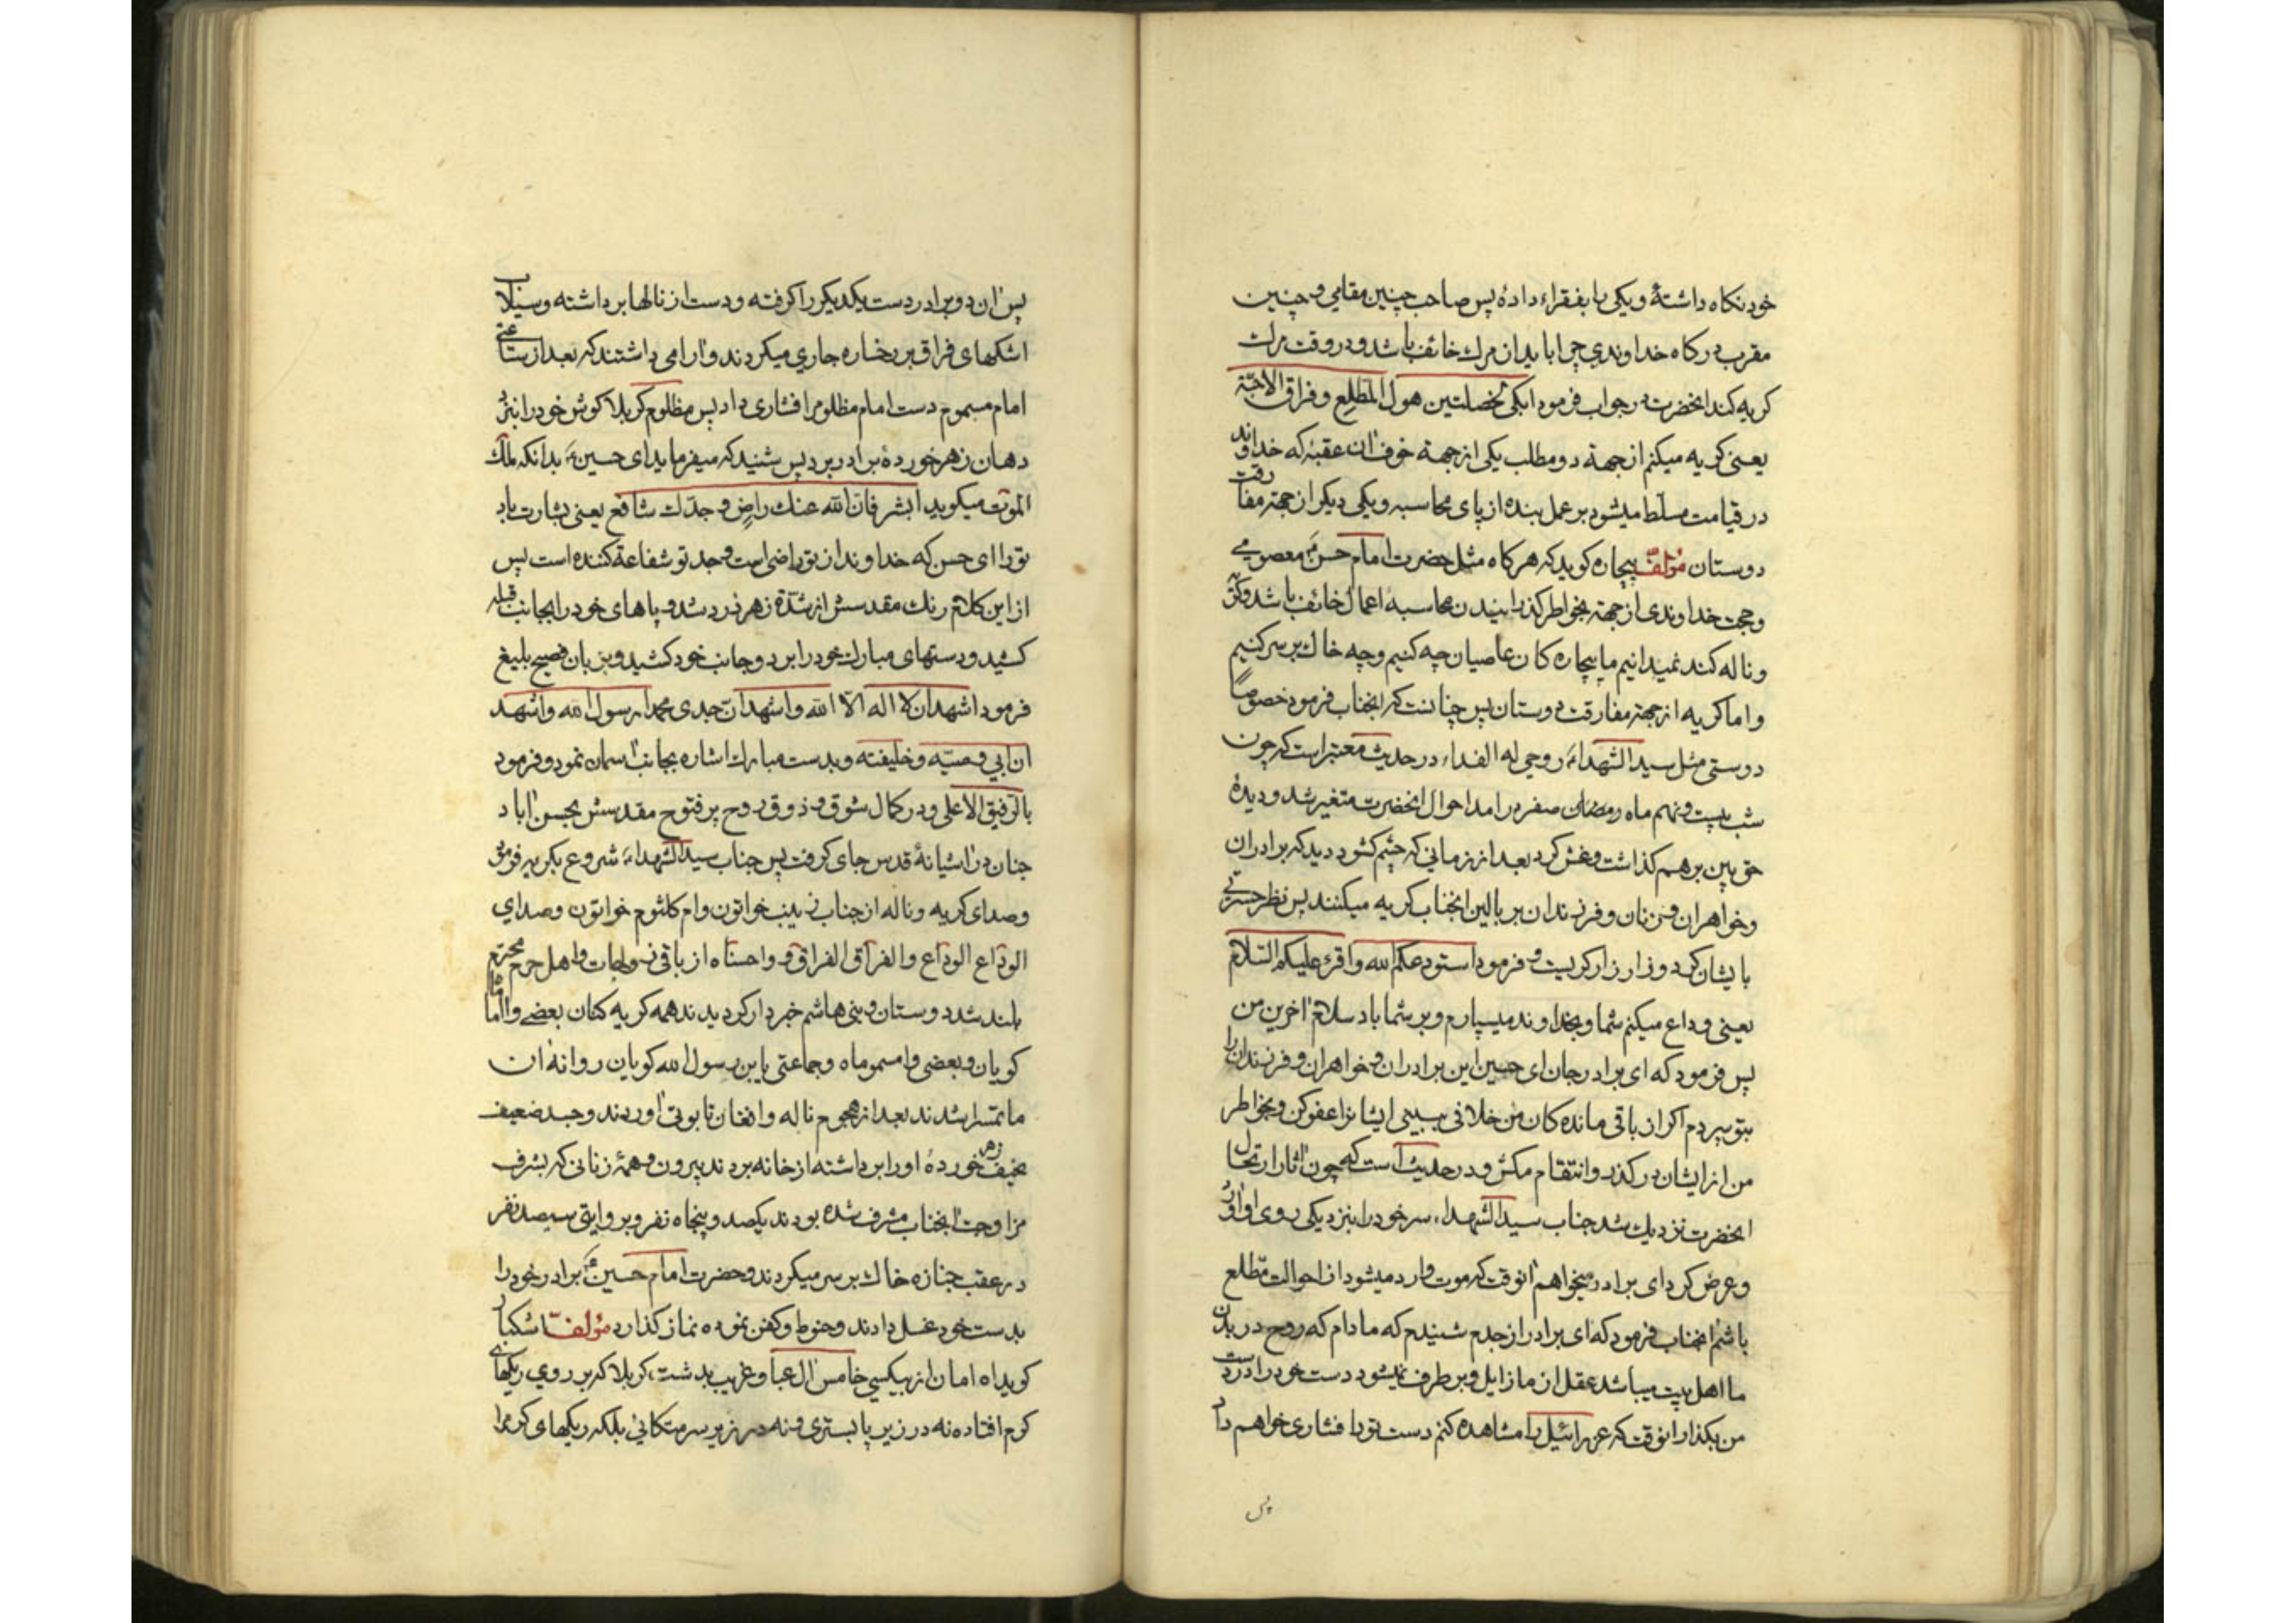 خود نكاه داشتهٔ و يكى را بفقراء دادهٔ پس صاحب چنين مقامى و چنين
مقرب دركاه خداوندى چرا بايد از مرك خائف باشد و در وقت مرك
كريه كند انحضرت در جواب فرمود ابكى لخصلتين هول المطلع و فراق الاحبّة
يعنى كريه ميكنم از جهة دو مطلب يكى از جهة خوف آن عقبهٔ كه خداوند
در قيامت مسلّط ميشود بر عمل بنده از پاى محاسبه و يكى ديكر از جهة مفارقت
دوستان مؤلّف بيچاره كويد كه هركاه مثل حضرت امام حسن ع معصومى
و حجت خداوندى از جهة بخواطر كذرانيدن محاسبهٔ اعمال خائف باشد و كريه
و ناله كند نميدانيم ما بيچاره كان عاصيان چه كنيم و چه خاك بر سر كنيم
و اما كريه از جهة مفارقت دوستان پس چنانست كه انجناب فرمود خصوصاً
دوستى مثل سيد الشهداء روحى له الفداء در حديث معتبر است كه چون
شب بيست و نهم ماه رمضان صفر در امد احوال انحضرت متغير شد و ديدهٔ
حق بين بر هم كذاشت و غش كرد بعد از زمانى كه چشم كشود ديد كه برادران
و خواهران و زنان و فرزندان بر بالين انجناب كريه ميكنند پس نظر حسرتى
بايشان كرد و زار زار كريست و فرمود استودعكم الله و اقرء عليكم السّلام
يعنى وداع ميكنم شما و بخداوند ميسپارم و بر شما باد سلام آخرين من
پس فرمود كه اى برادر جان اى حسين اين برادران و خواهران و فرزندان را
بتو سپردم اكر از باقى مانده كان من خلافى ببينى ايشانرا عفو كن و بخواطر
من از ايشان در كذر و انتقام مكش و در حديث است كه چون آثار ارتحال
انحضرت نزديك شد جناب سيد الشهداء سر خود را بنزديكى روى او آورد
و عرض كرد اى برادر ميخواهم آنوقت كه موت وارد ميشود از احوالت مطّلع
باشم انجناب فرمود كه اى برادر از جدم شنيدم كه مادام كه روح در بدن
ما اهل بيت ميباشد عقل از ما زايل و بر طرف نميشود دست خود را در دست
من بكذار انوقت كه عزرائيل را مشاهده كنم دست تو را فشارى خواهم داد
پس
پس آن دو برادر دست يكديكر را كرفته و دست از نالها بر داشته و سيلاب
اشكهاى فراق بر رخساره جارى ميكردند و آرامى داشتند كه بعد از ساعتى
امام مسموم دست امام مظلوم را فشارى داد پس مظلوم كربلا كوش خود را بنزد
دهان زهر خوردهٔ برادر برد پس شنيد كه ميفرمايد اى حسين ع بدانكه ملك
الموت ميكويد ابشر فان الله عنك راضٍ و جدّك شافع يعنى بشارت باد
تو را اى حسن كه خداوند از تو راضى است و جد تو شفاعة كننده است پس
از اين كلام رنك مقدسش از شدّة زهر زرد شد و پاهاى خود را بجانب قبله
كشيد و دستهاى مبارك خود را بر دو جانب خود كشيد و بزبان فصيح بليغ
فرمود اشهد ان لا اله الّا الله و اشهد انّ جدى محمداً رسول الله و اشهد
ان ابى وصيّه و خليفته و بدست مبارك اشاره بجانب آسمان نمود و فرمود
بالرّفيق الاعلى و در كمال شوق و ذوق روح پر فتوح مقدسش بحسن آباد
جنان در آشيانهٔ قدس جاى كرفت پس جناب سيد الشهداء ع شروع بكريه فرمود
و صداى كريه و ناله از جناب زينب خواتون و ام كلثوم خواتون و صداى
الوداع الوداع و الفراق الفراق و واحسناه از باقى زوجات و اهل حرم محترم
بلند شد دوستان و بنى هاشم خبردار كرديدند همه كريه كنان بعضى وا اماما
كويان و بعضى وا مسموماه و جماعتى يابن رسول الله كويان روانهٔ آن
ماتمسرا شدند بعد از هجوم ناله و افغان تابوتى آوردند و جسد ضعيف
نحيف زهر خوردهٔ او را بر داشته از خانه بردند بيرون و همهٔ زنانى كه بشرف
مزاوجت انجناب مشرف شده بودند يكصد و پنجاه نفر و بروايتى سيصد نفر
در عقب جنازه خاك بر سر ميكردند و حضرت امام حسين ع برادر خود را
بدست خود غسل دادند و حنوط و كفن نموده نماز كذارد مؤلّف اشكبار
كويد آه امان از بيكسى خامس آل عبا و غريب دشت كربلا كه بر روى ريكهاى
كرم افتاده نه در زير پا بسترى و نه در زير سر متكائى بلكه ريكهاى كرم را